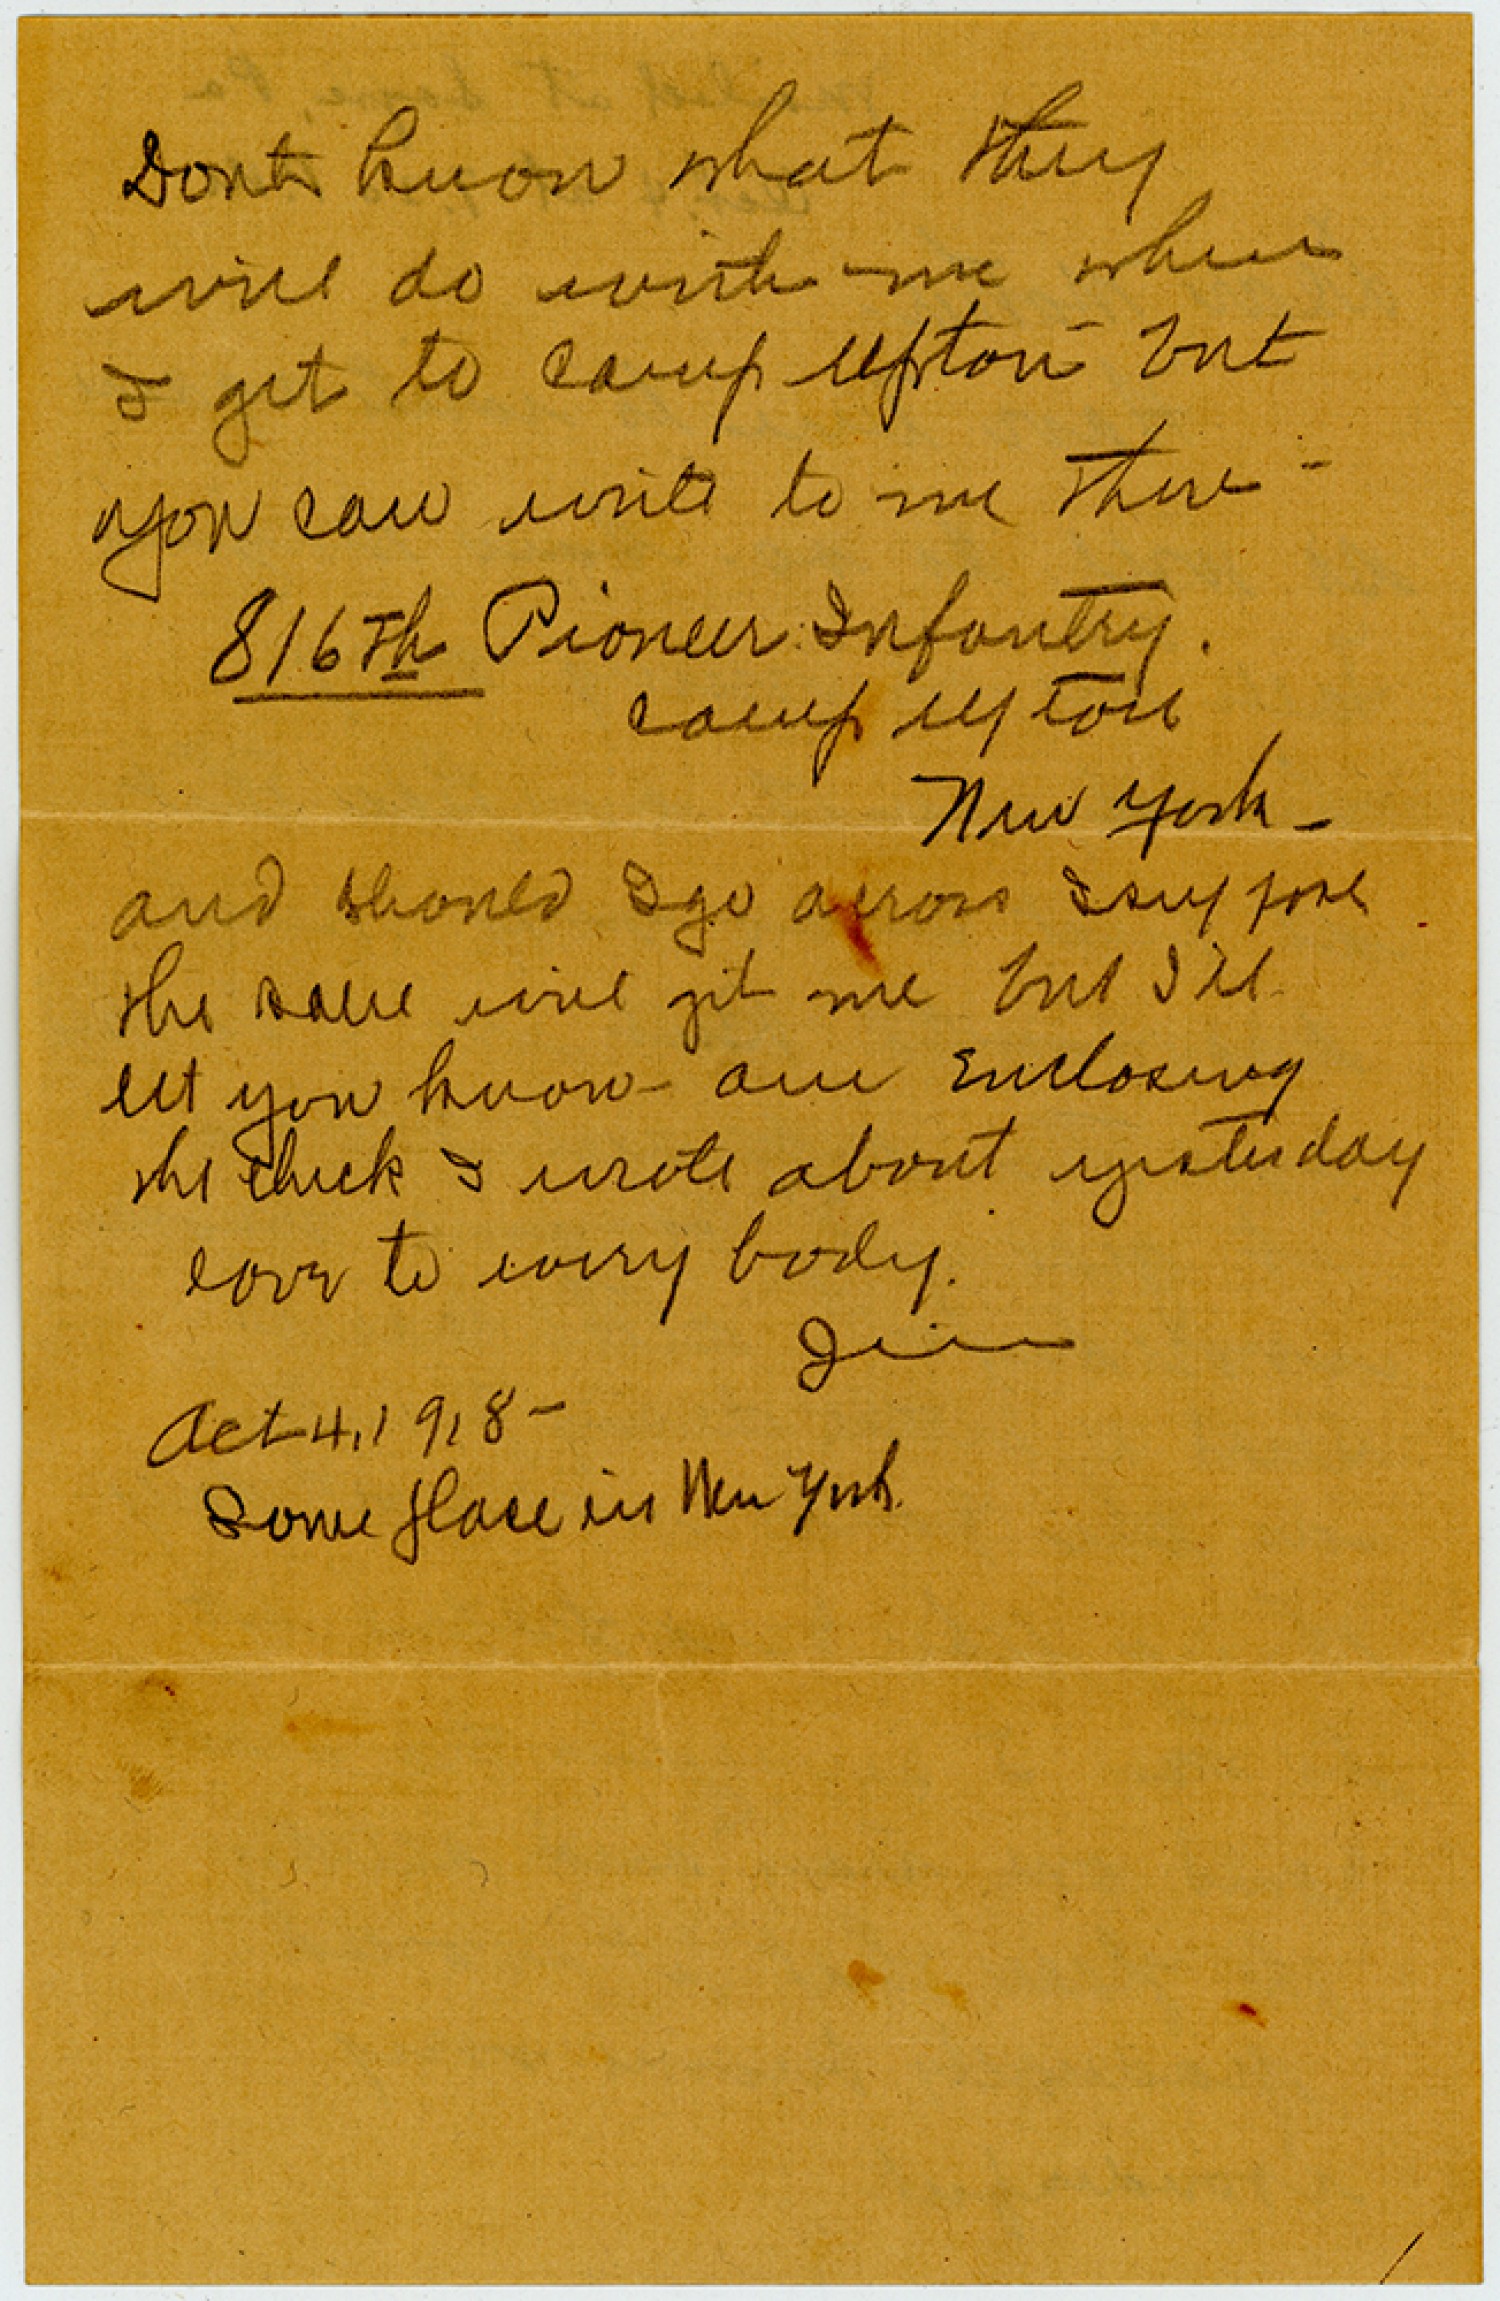 Dont know what they
will do with me when
I get to camp Upton - but
you can write to me there -
816Th Pioneer Infantry.
camp Upton
New York -
and should I go across I suppose
the same will get me but I'll
let you know - am Enclosing
the check I wrote about yesterday
love to every body.
Jim
Oct 4, 1918 -
Some place in New York.